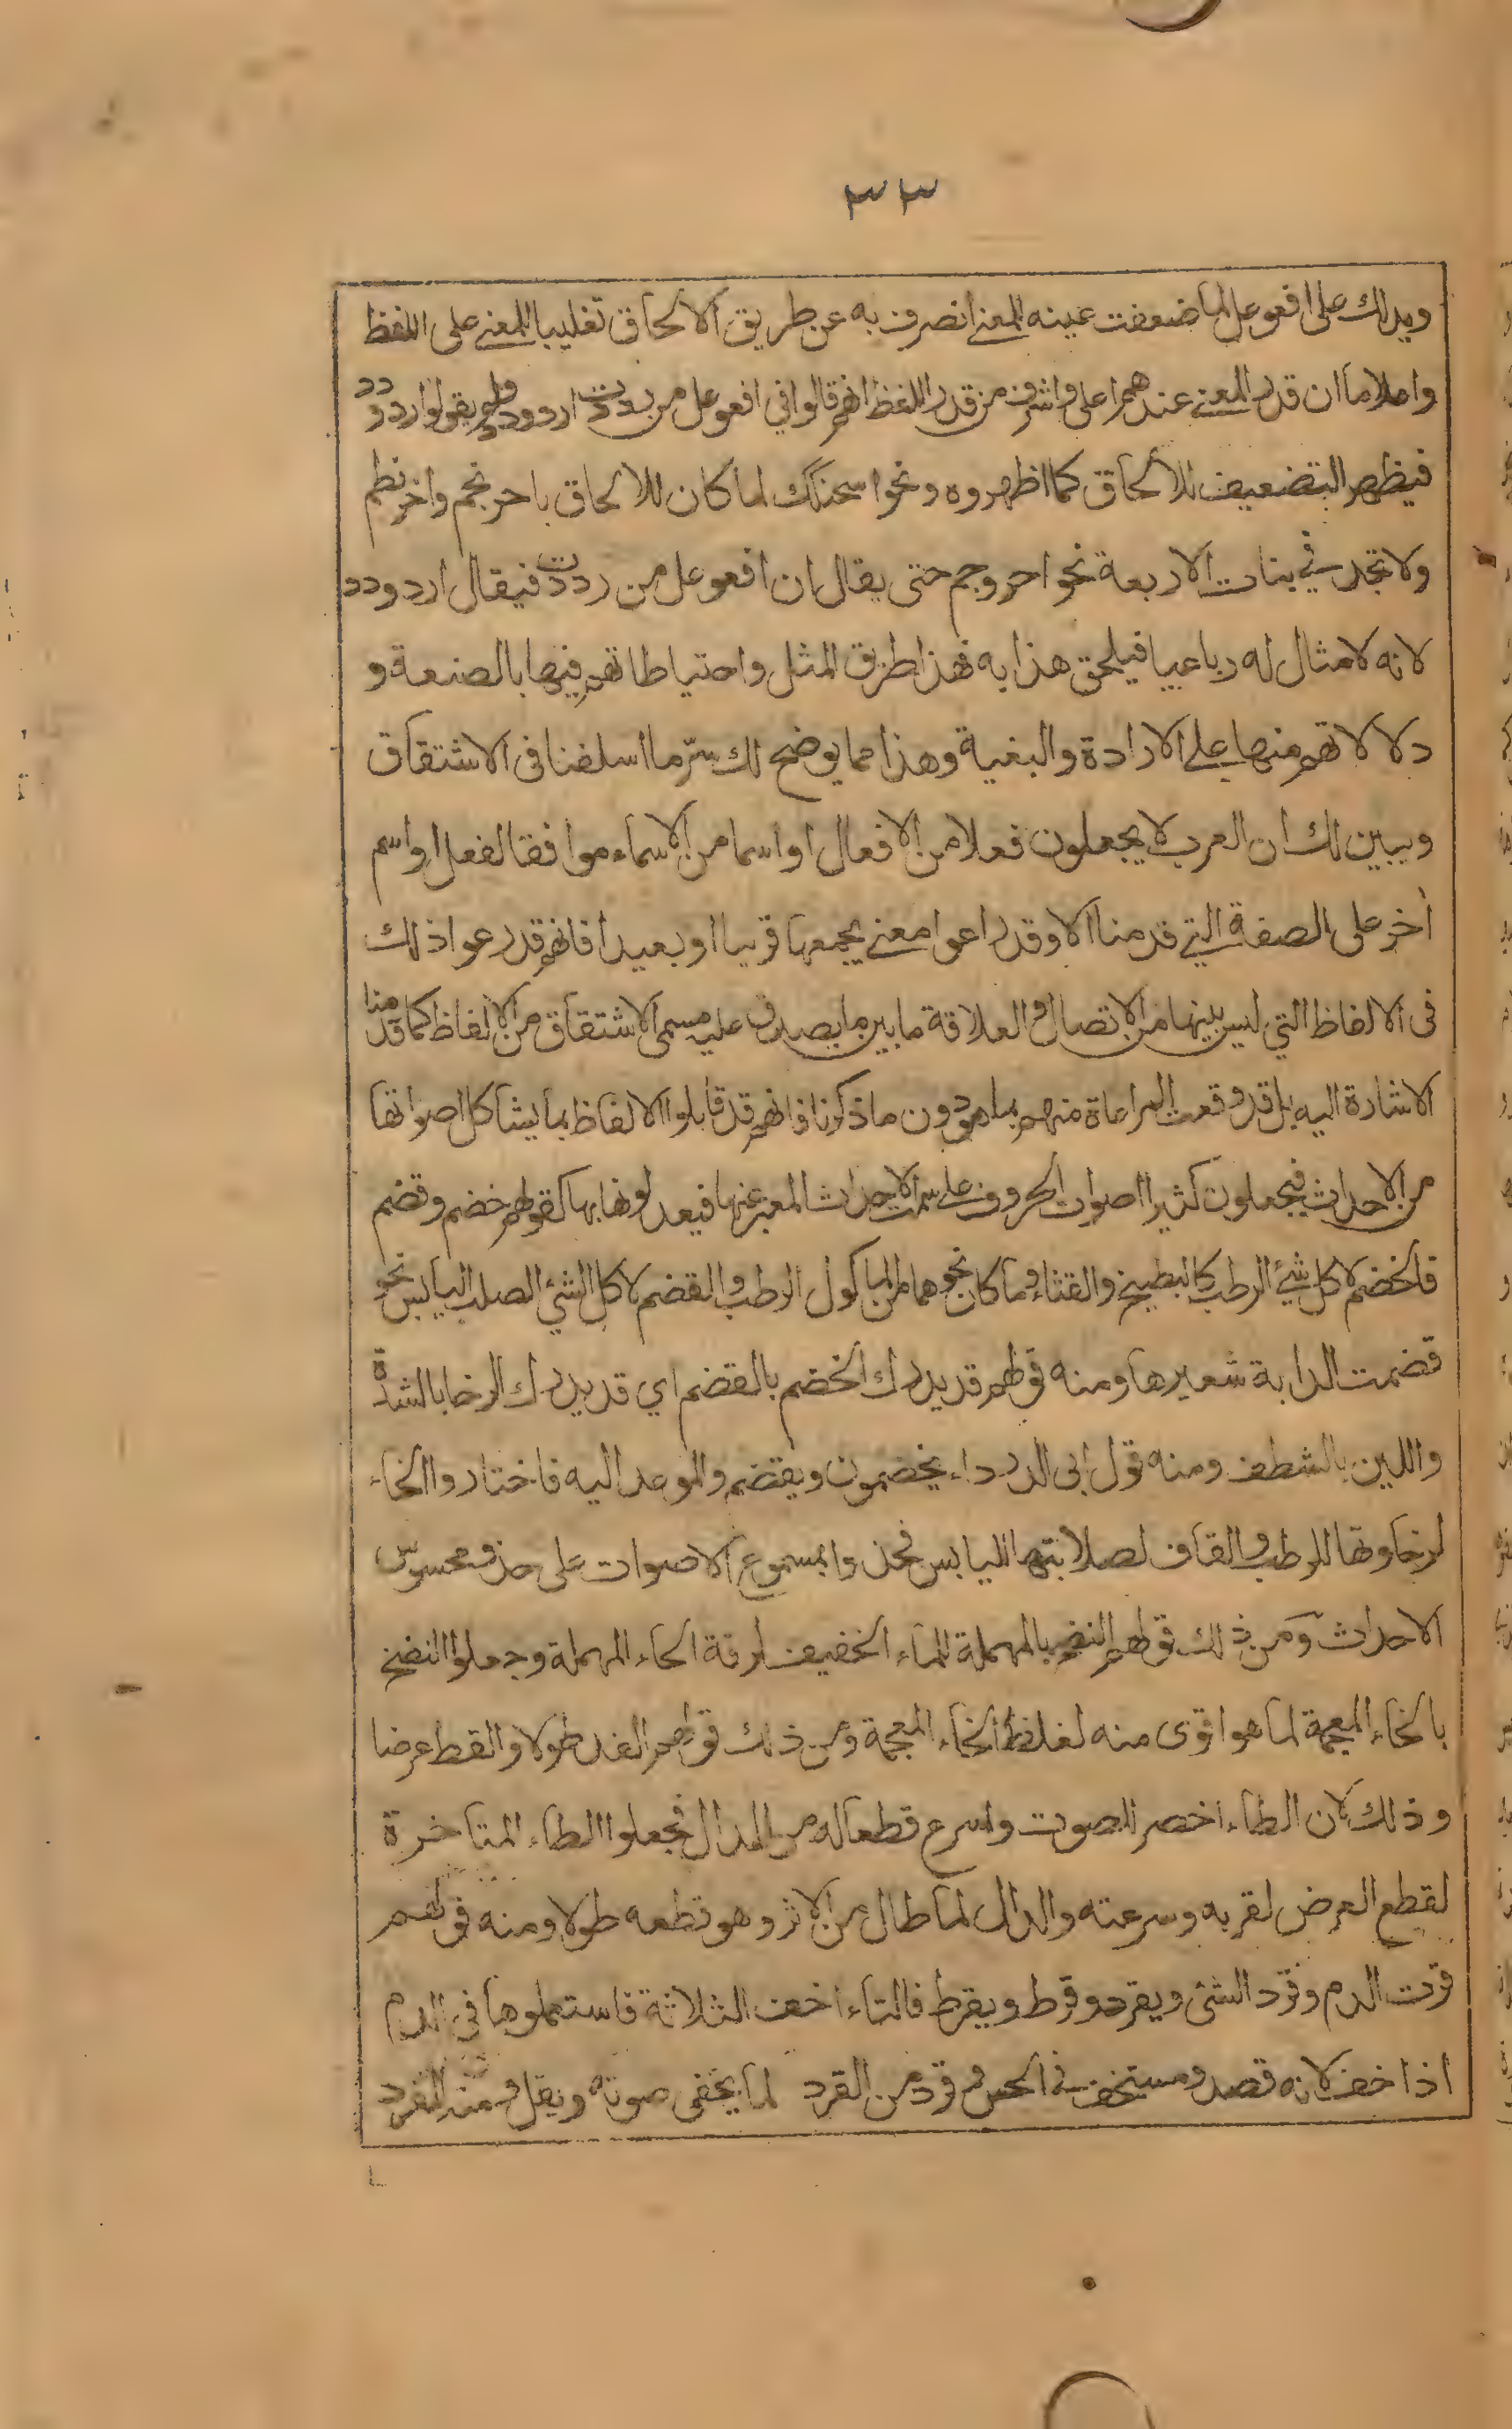 ٣٣
ويدلك على افعوعل لما ضعفت عينه للمعنى انصرف به عن طريق الالحاق تغليبا للمعنى على اللفظ
واعلاما ان قدر المعنى عندهم اعلى واشرف من قدر اللفظ انهم قالوا في افعوعل من رددت اردود ولم يقولوا اردودد
فيظهر التضعيف للالحاق كما اظهروه في نحو اسحنكك لما كان للالحاق باحرنجم واخرنطم
ولا تجد في بنات الاربعة نحو احروجم حتى يقال ان افعوعل من رددت فيقال اردودد
لانه لا مثال له رباعيا فيلحق هذا به فهذا طريق المثل واحتياطاتهم فيها بالصنعة و
دلالاتهم منها على الارادة والبغية وهذا مما يوضح لك سرّ ما اسلفنا في الاشتقاق
ويبين لك ان العرب لا يجعلون فعلا من الافعال او اسما من الاسماء موافقا لفعل او اسم
آخر على الصفة التي قدمنا الا وقد راعوا معنى يجمعها قريبا او بعيدا فانهم قد رعوا ذلك
في الالفاظ التي ليس بينهما من الاتصال والعلاقة ما بين ما يصدق عليه مسمى الاشتقاق من الالفاظ كما قدمنا
الاشارة اليه بل قد وقعت المراعاة منهم بما هو دون ما ذكرنا فانهم قد قابلوا الالفاظ بما يشاكل اصواتها
من الاحداث فيجعلون كثيرا اصوات الحروف على سمت الاحداث المعبر عنها فيعدلونها بها كقولهم خضم وقضم
فالخضم لاكل شيئ الرطب كالبطيخ والقثاء وما كان نحوهما من الماكول الرطب والقضم لاكل الشئ الصلب اليابس نحو
قضمت الدابة شعيرها ومنه قولهم قد يدرك الخضم بالقضم اي قد يدرك الرخا بالشدة
واللين بالشظف ومنه قول ابي الدرداء يخضمون ونقضم والموعد اليه فاختاروا الخاء
لرخاوتها للرطب والقاف لصلابتها لليابس فحذوا بمسموع الاصوات على حذو محسوس
الاحداث ومن ذلك قولهم النضح بالمهملة للماء الخفيف لرقة الحاء المهملة وجعلوا النضخ
بالخاء المعجمة لما هو اقوى منه لغلظ الخاء المعجمة ومن ذلك قولهم القد طولا والقط عرضا
وذلك لان الطاء اخصر للصوت واسرع قطعا له من الدال فجعلوا الطاء المتاخرة
لقطع العرض لقربه وسرعته والدال لما طال من الاثر وهو قطعه طولا ومنه قولهم
قرت الدم وقرد الشئ ويقرد وقرط ويقرط فالتاء اخف الثلاثة فاستعملوها في الدم
اذا خف لانه قصد ومستخف في الحس وقرد من القرد لما يخفى صوته ويقل ومنه القرد